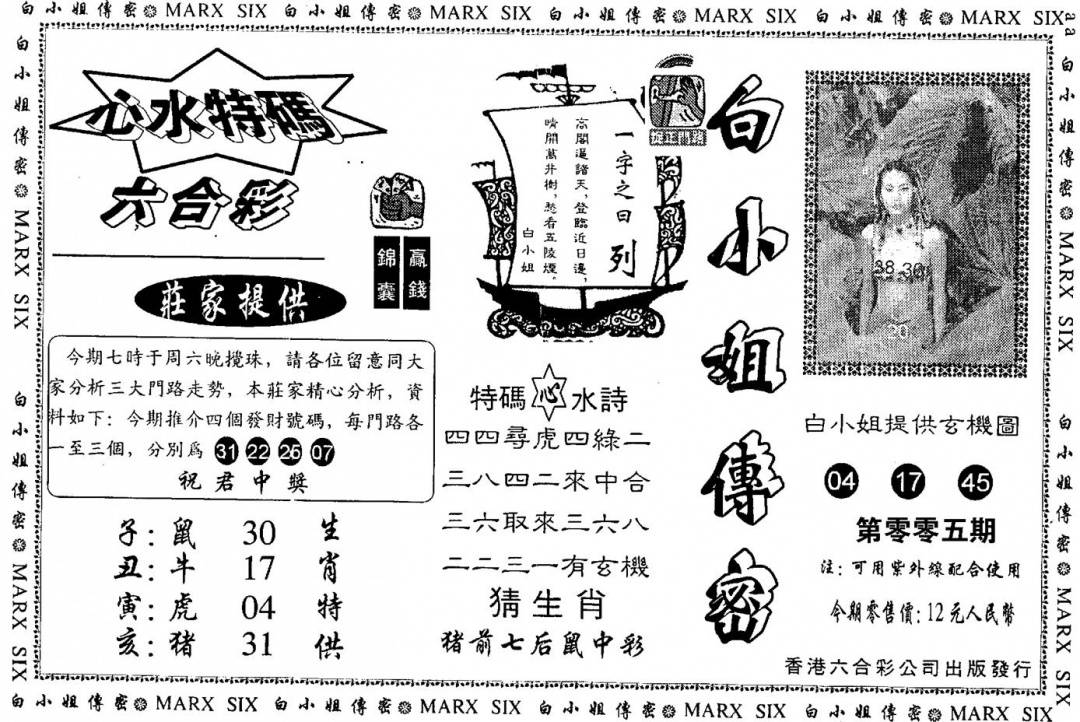 白小姐傳密 MARX SIX 白小姐傳密 MARX SIX 白小姐傳密 MARX SIX 白小姐傳密 MARX SIX
白小姐傳密 MARX SIX 白小姐傳密 MARX SIX
心水特碼
六合彩
莊家提供
錦囊
贏錢
今期七時于周六晚攪珠，請各位留意同大
家分析三大門路走勢，本莊家精心分析，資
料如下：今期推介四個發財號碼，每門路各
一至三個，分別爲 31 22 26 07
祝君中獎
子：鼠 30
丑：牛 17
寅：虎 04
亥：猪 31
生肖特供
一字之曰 列
高閣逼諸天，登臨近日邊，
晴開萬井樹，愁看五陵煙。
白小姐
特碼 心 水詩
四四尋虎四綠二
三八四二來中合
三六取來三六八
二二三一有玄機
猜生肖
猪前七后鼠中彩
白小姐傳密
38-30
20
白小姐提供玄機圖
04 17 45
第零零五期
注：可用紫外線配合使用
今期零售價：12元人民幣
香港六合彩公司出版發行
白小姐傳密 MARX SIX 白小姐傳密 MARX SIX
白小姐傳密 MARX SIX 白小姐傳密 MARX SIX 白小姐傳密 MARX SIX 白小姐傳密 MARX SIX